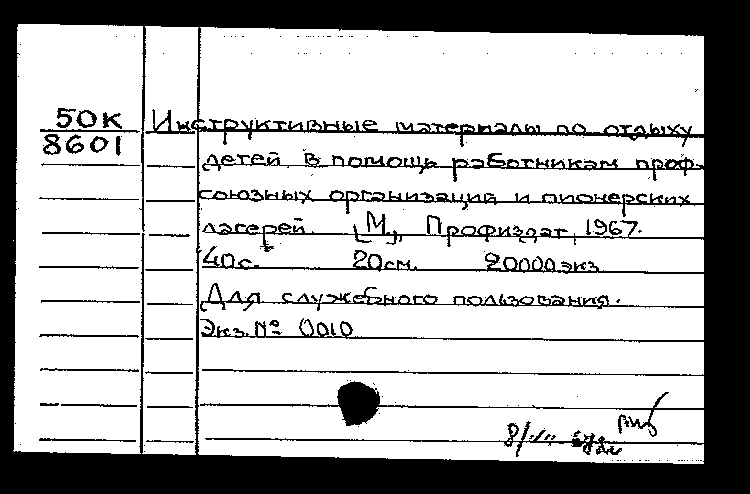 50К
8601
Инструктивные материалы по отдыху
детей. В помощь работникам проф-
союзных организаций и пионерских
лагерей. [М.], Профиздат, 1967.
40с. 20см. 20000экз.
Для служебного пользования.
Экз. № 0010